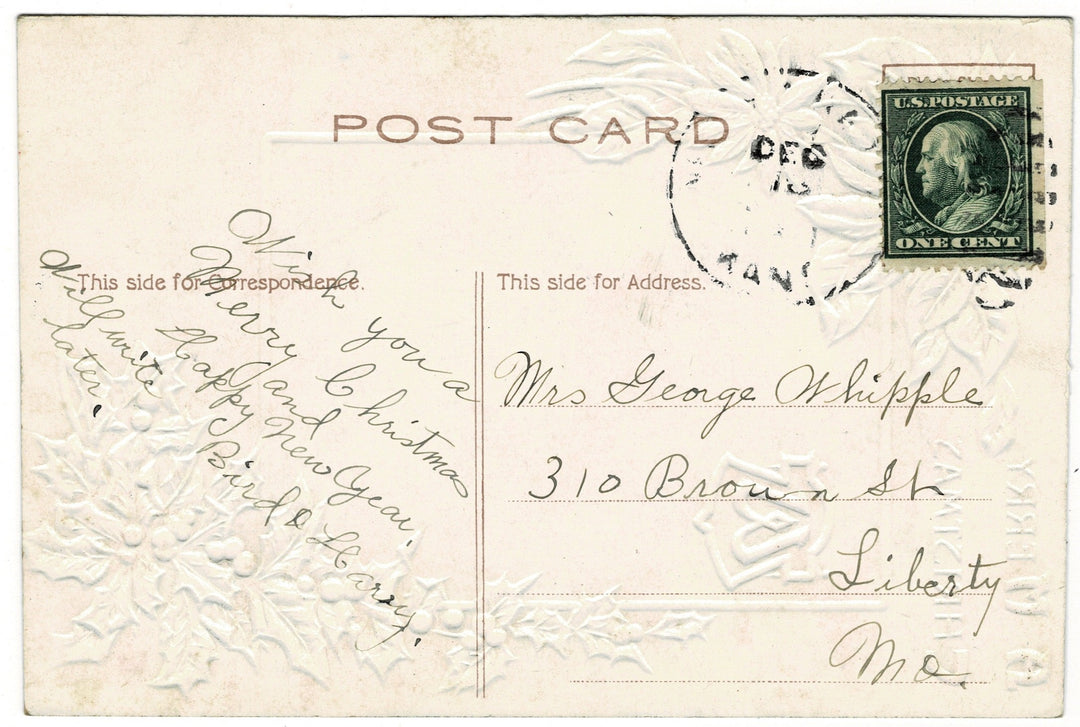 POST CARD
DEC
KANS
U.S. POSTAGE
ONE CENT
This side for Correspondence.
This side for Address.
Wish you a
Merry Christmas
and
Happy New Year.
Bird & Harry.
Will write
later.
Mrs George Whipple
310 Brown St
Liberty
Mo.